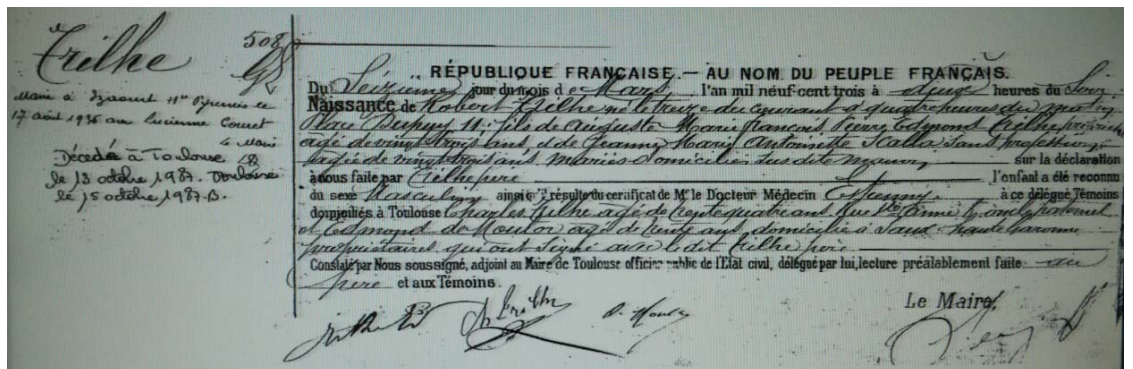 508
Trilhe
Marié à Izaourt Htes Pyrénées le
17 août 1936 avec Lucienne Couret
Le Maire
Décédé à Toulouse
le 13 octobre 1987. Toulouse
le 15 octobre 1987.
RÉPUBLIQUE FRANÇAISE. — AU NOM DU PEUPLE FRANÇAIS.
Du Seizième jour du mois de Mars l'an mil neuf-cent trois à deux heures du Soir
Naissance de Robert Trilhe né le treize du courant à quatre heures du matin
Place Dupuy 11. fils de Auguste Marie François Pierre Edmond Trilhe propriétaire
agé de vingt trois ans, et de Jeanne Marie Antoinette Scalla sans profession
agée de vingt trois ans mariés domiciliés susdite maison sur la déclaration
à nous faite par Trilhe père l'enfant a été reconnu
du sexe Masculin ainsi qu'il résulte du cerificat de Mr le Docteur Médecin à ce délégué Témoins
domiciliés à Toulouse Charles Trilhe agé de trente quatre ans, Rue Ste Anne
et Edmond de agé de trente ans domicilié à haute Garonne
propriétaires qui ont signé avec ledit Trilhe père
Constaté par Nous soussigné, adjoint au Maire de Toulouse officier public de l'Etat civil, délégué par lui, lecture préalablement faite au
père et aux Témoins.
Le Maire,